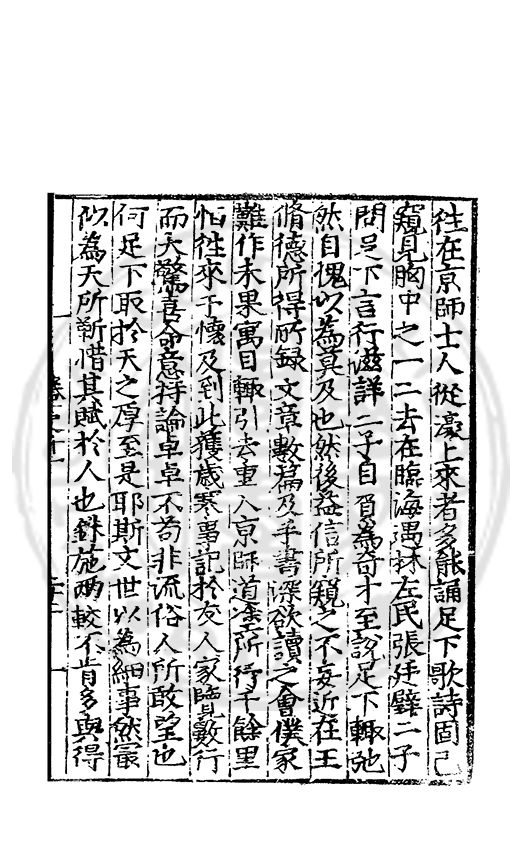 往在京師士人從濠上來者多能誦足下歌詩固已
窺見胸中之一二去在臨海遇林左民張廷璧二子
問足下言行滋詳二子自負為奇才至說足下輙弛
然自愧以為莫及也然後益信所窺之不妄近在王
脩德所得所録文章數篇及手書深欲讀之會僕家
難作未果寓目輙引去重入京師道塗所行千餘里
怕徃來予懷及到此獲歲寒事記於友人家覽數行
而大驚喜命意持論卓卓不苟非流俗人所敢望也
何足下取於天之厚至是耶斯文世以為細事然㝡
似為天所靳惜其賦於人也銖施兩較不肯多與得